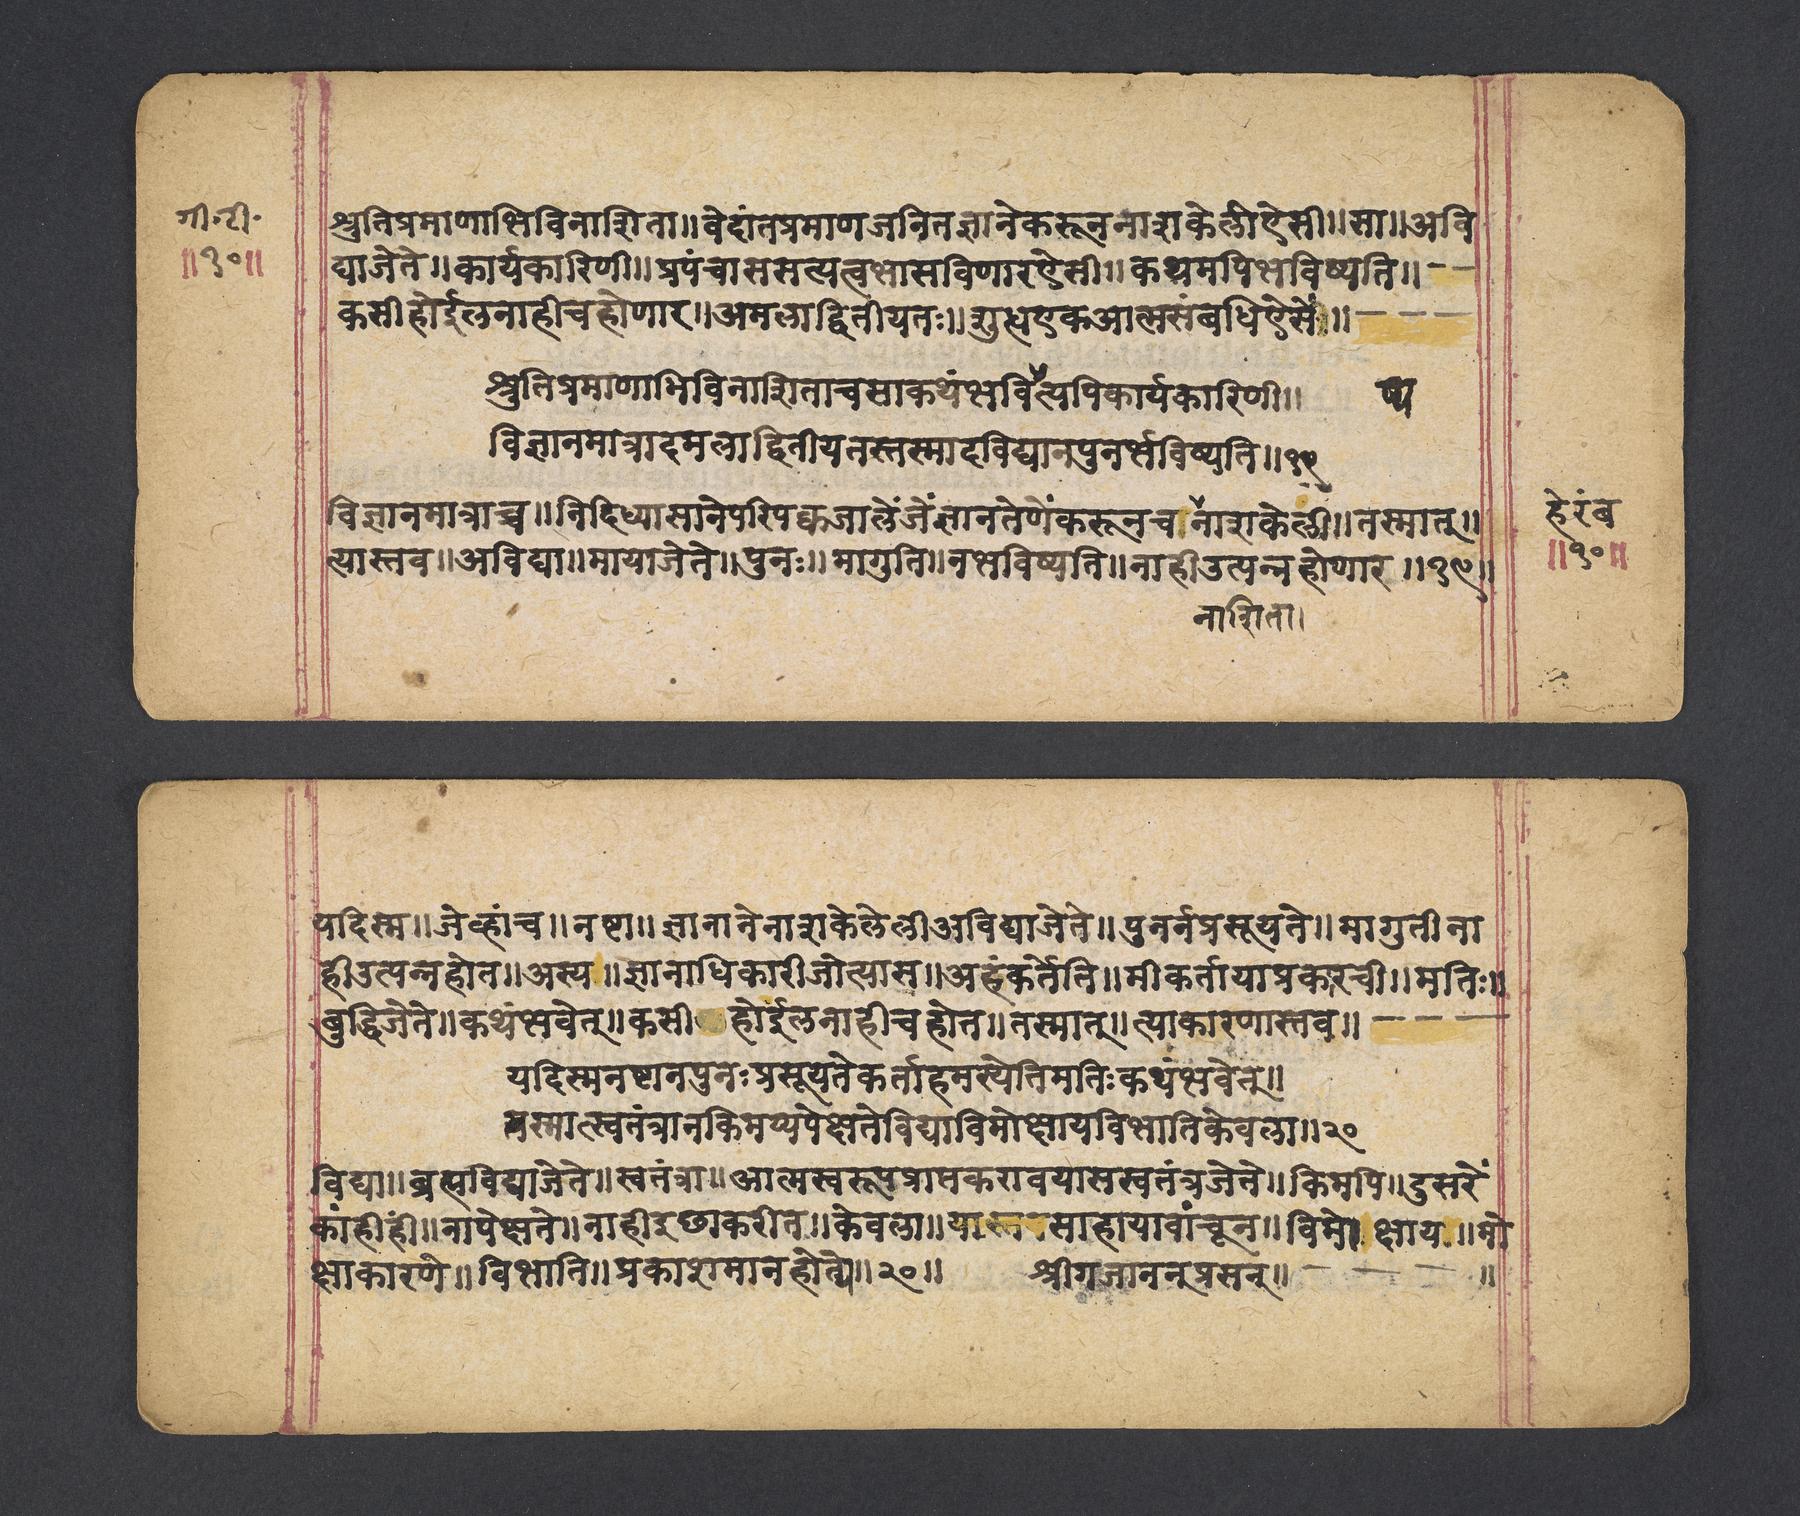 गी.टी.
॥१०॥
श्रुतिप्रमाणाभिविनाशिता॥वेदांतप्रमाणजनितज्ञानेकरूननाशकेलीऐसी॥सा॥अवि
द्याजेते॥कार्यकारिणी॥प्रपंचाससत्यत्वभासविणारऐसी॥कथमपिभविष्यति॥
कसीहोईलनाहीचहोणार॥अमलाद्वितीयतः॥शुध्धएकआत्मसंबधिऐसें॥
श्रुतिप्रमाणाभिविनाशिताचसाकथंभवित्यपिकार्यकारिणी॥
ष्य
विज्ञानमात्रादमलाद्वितीयतस्तस्मादविद्यानपुनर्भविष्यति॥१९
विज्ञानमात्राच्च॥निदिध्यासानेपरिपक्वजालेंजेंज्ञानतेणेंकरूनचनाशकेली॥तस्मात्॥
त्यास्तव॥अविद्या॥मायाजेते॥पुनः॥मागुति॥नभविष्यति॥नाहीउत्पन्नहोणार॥१९॥
नाशिता।
हेरंब
॥१०॥
यदिस्म॥जेव्हांच॥नष्टा॥ज्ञानानेनाशकेलेलीअविद्याजेते॥पुनर्नप्रसूयते॥मागुतीना
हीउत्पन्नहोत॥अस्य॥ज्ञानाधिकारीजोत्यास॥अहंकर्तेति॥मीकर्तायाप्रकारची॥मतिः॥
बुद्धिजेते॥कथंभवेत्॥कसीहोईलनाहीचहोत॥तस्मात्॥त्याकारणास्तव॥
यदिस्मनष्टानपुनःप्रसूयतेकर्ताहमस्येतिमतिःकथंभवेत्॥
तस्मात्स्वतंत्रानकिमप्यपेक्षतेविद्याविमोक्षायविभातिकेवला॥२०
विद्या॥ब्रह्मविद्याजेते॥स्वतंत्रा॥आत्मस्वरूपप्राप्तकरावयासस्वतंत्रजेते॥किमपि॥दुसरें
कांहीहीं॥नापेक्षते॥नाहीइछाकरीत॥केवला॥साहायावांचून॥विमोक्षाय॥मो
क्षाकारणें॥विभाति॥प्रकाशमानहोत्ये॥२०॥ श्रीगजाननप्रसन्॥ ॥